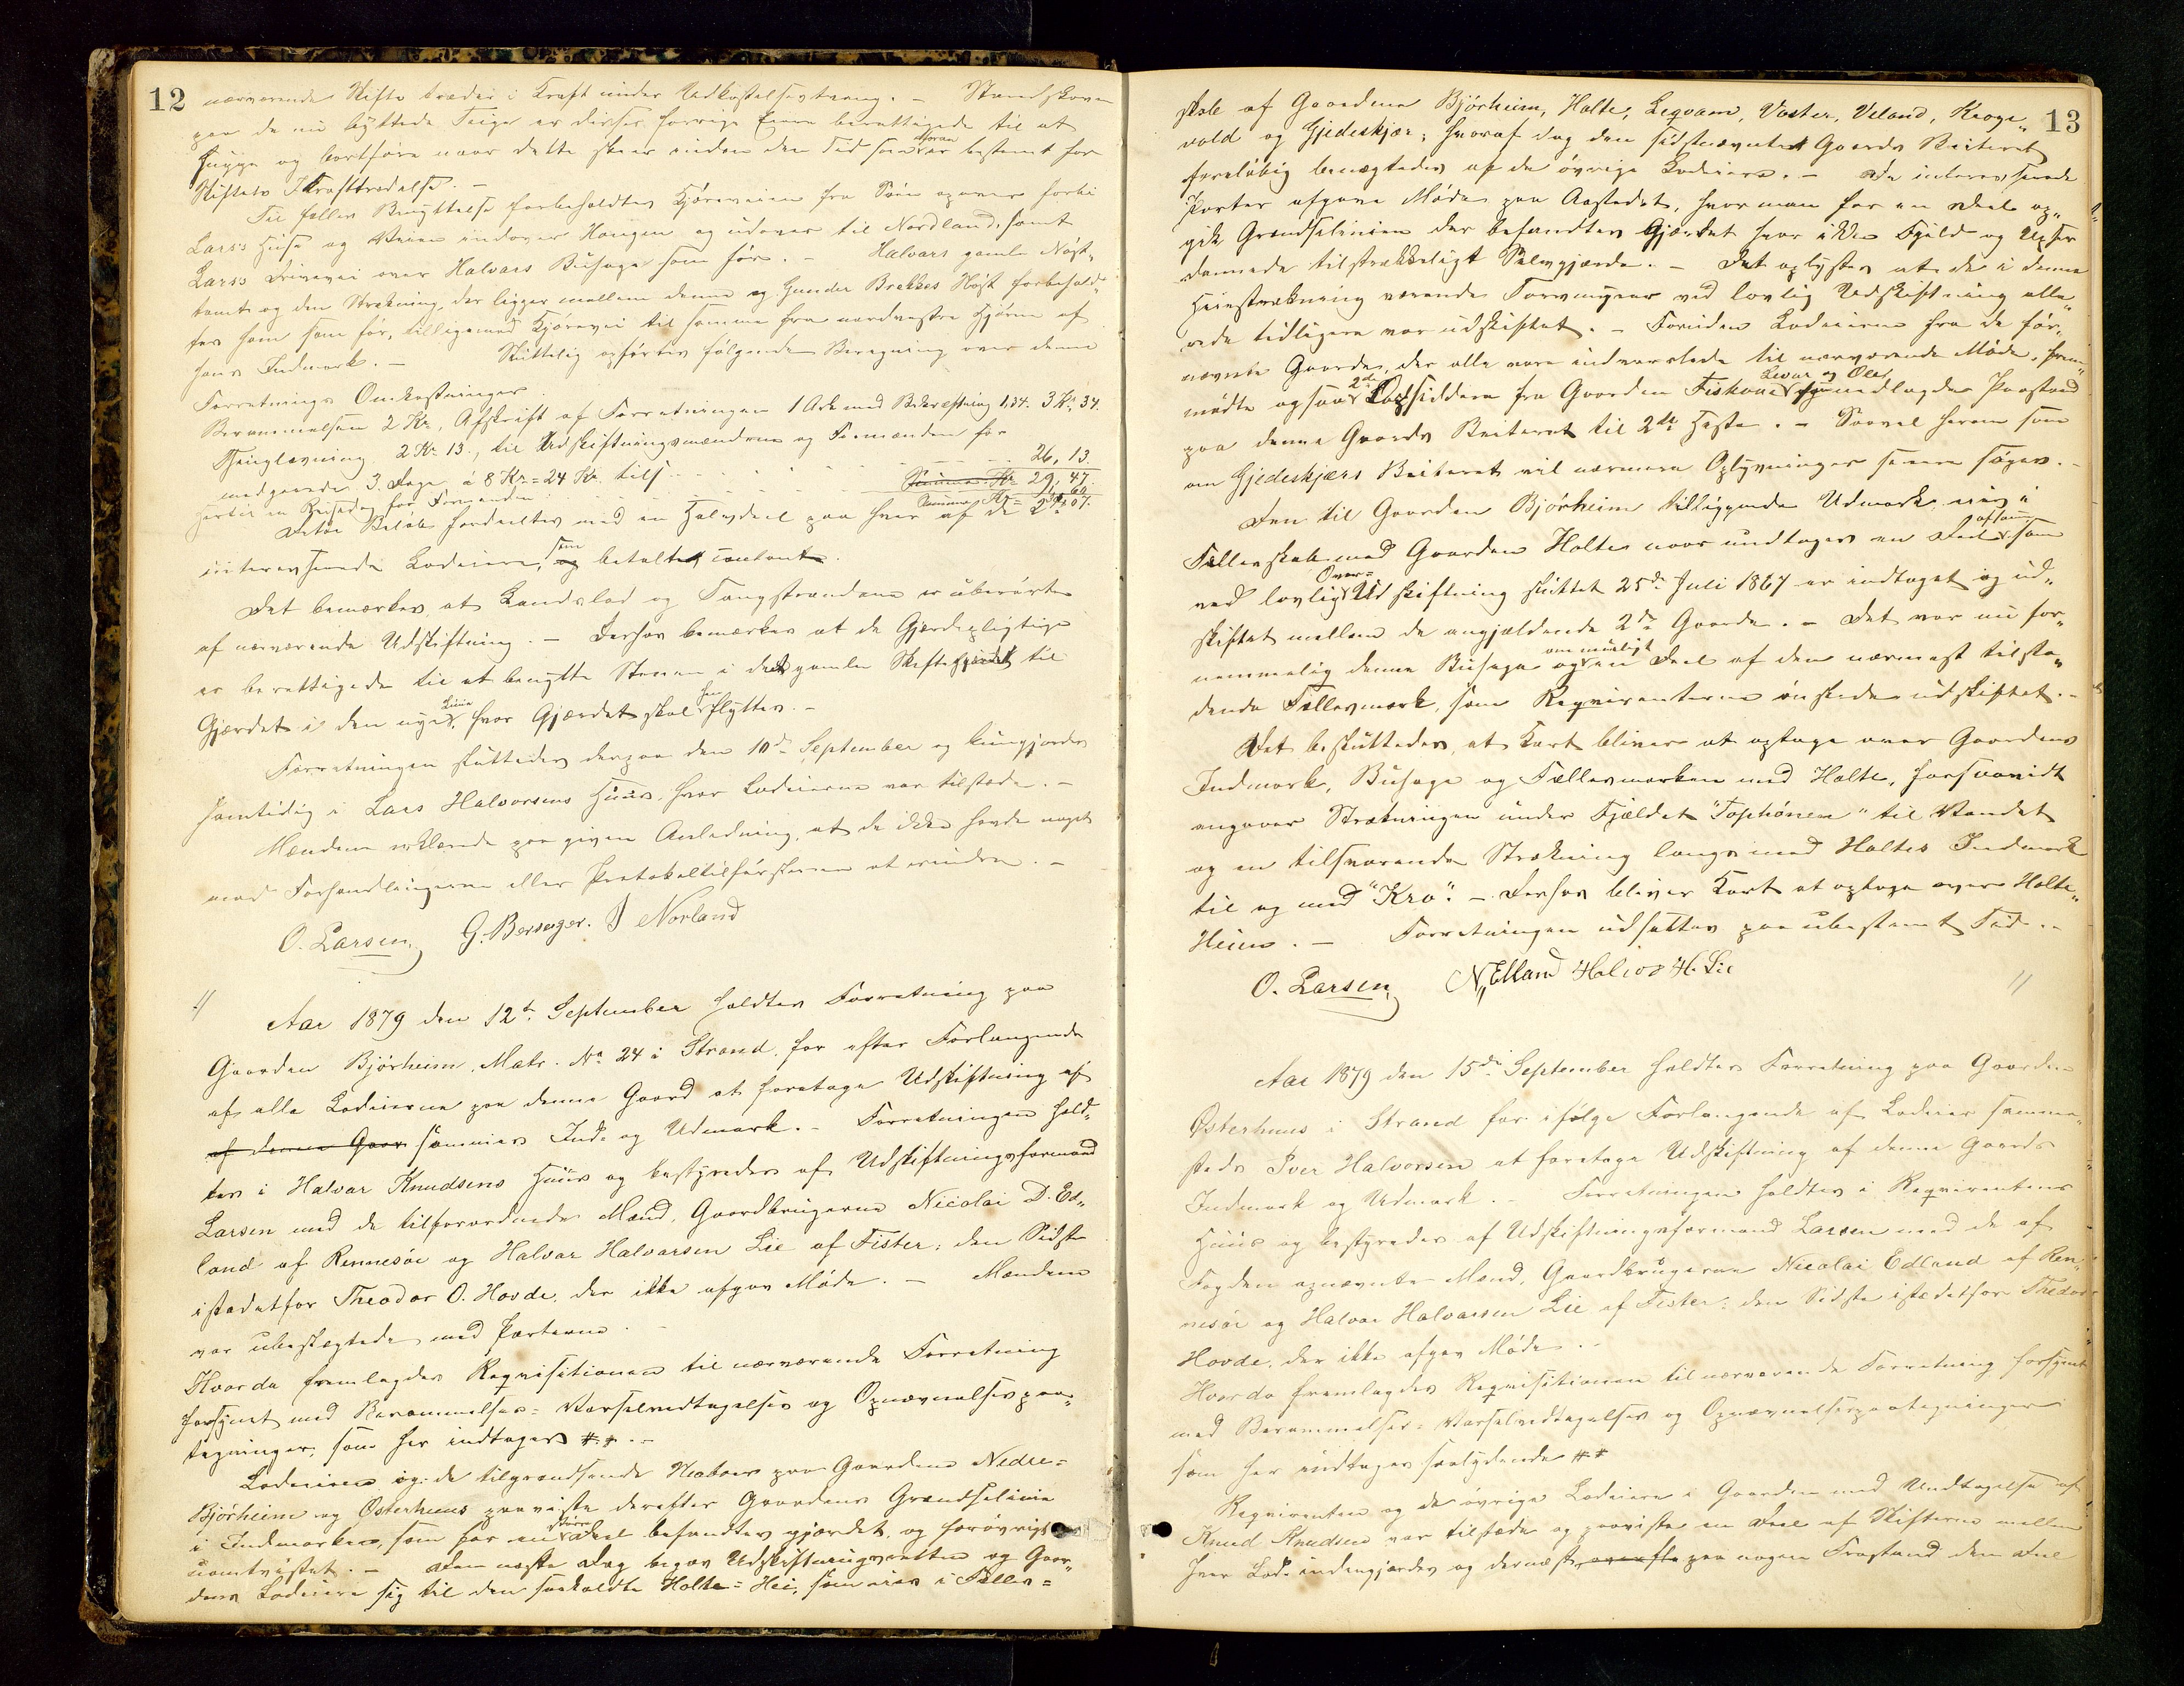 12
nærværende Skifte træder i Kraft under Udkastelsestvang. – Standskoven
paa de nu byttede Teiger er disses forrige Eiere berettigede til at
hugge og bortføre naar dette skeer inden den Tid som foran er bestemt for
Skiftets Ikrafttrædelse. –
Til fælles Benyttelse forbeholdtes Kjøreveien fra Søen opover forbi
Lars's Huse og Veien indover Haugen og udover til Nordland, samt
Lars's Drivevei over Halvars Buhage som før. – Halvars gamle Nøst-
tomt og den Strækning, der ligger mellem denne og Gunder Brekkes Nøst forbehold-
tes ham som før, tilligemed Kjørevei til samme fra nordvestre Hjørne af
hans Indmark. – Sluttelig opførtes følgende Beregning over denne
Forretnings Omkostninger
Berammelsen 2 Kr, Afskrift af Forretningen 1 Ark med Bekræftning 1,34. 3 Kr. 34.
Thinglæsning 2 Kr. 13., til Udskiftningsmændene og Formanden for
medgaaede 3 Dage à 8 Kr. = 24 Kr. tils. 26, 13.
Summa Kr. 29, 47.
hertil en Reisedag for Formanden 1,60
Summa Kr.
Dette Beløb fordeeltes med en Halvdeel paa hver af de 2de
interesserende Lodeiere, som og betaltes contant.
Det bemærkes at Landslod og Tangstrandene er uberørte
af nærværende Udskiftning. – Derhos bemærkes at de Gjærdepligtige
er berettigede til at benytte Stenen i det gamle Skiftegjærde til
Gjærdet i den nye Linie, hvor Gjærdet skal hen flyttes. –
Forretningen sluttedes derpaa den 10de September og kundgjordes
samtidig i Lars Halvorsens Huus, hvor Lodeierne var tilstede. –
Mændene erklærede paa given Anledning, at de ikke havde noget
mod Forhandlingerne eller Protokoltilførslerne at erindre. –
O. Larsen G. Berserger. J Norland
4/ Aar 1879 den 12te September holdtes Forretning paa
Gaarden Bjørheim, Matr. No 24 i Strand, for efter Forlangende
af alle Lodeierne paa denne Gaard at foretage Udskiftning af
af denne Gaar sammes Ind- og Udmark. – Forretningen hold-
tes i Halvar Knudsens Huus og bestyredes af Udskiftningsformand
Larsen med de tilforordnede Mænd, Gaardbrugerne Nicolai D. Ed-
land af Rennesøe og Halvar Halvarsen Lie af Fister; den Sidste
istedetfor Theodor O. Hovde, der ikke afgav Møde. – Mændene
var ubeslægtede med Parterne. –
Hvorda fremlagdes Requisitionen til nærværende Forretning
forsynet med Berammelses- Varselvedtagelses og Opnævnelsespaa-
tegninger, som her indtages ##. –
Lodeierne og de tilgrændsende Naboer paa Gaardene Nedre-
Bjørheim og Østerhuus paaviste derefter Gaardens Grændselinie
i Indmarken, som for en større Deel befandtes gjærdet, og forøvrigt
uomtvistet. – Den næste Dag begav Udskiftningsretten og Gaar-
dens Lodeiere sig til den saakaldte Holte-Hei, som eies i Fælles-
13
skab af Gaardene Bjørheim, Holte, Leqvam, Vaster, Veland, Kroge-
vold og Gjedeskjær; hvoraf dog den sidstnævnte Gaards Beiteret
foreløbig benægtedes af de øvrige Lodeiere. – De interesserede
Parter afgave Møde paa Aastedet, hvor man for en Deel op-
gik Grændselinien der befandtes Gjærdet hvor ikke Fjeld og Uhser
dannede tilstrækkeligt Selvgjærde. – Det oplystes at de i denne
Heiestrækning værende Torvmyrer ved lovlig Udskiftning alle-
rede tidligere var udskiftet. – Foruden Lodeierne fra de før-
nævnte Gaarde, der alle vare indvarslede til nærværende Møde, frem-
mødte ogsaa 2de Opsiddere fra Gaarden Fiskaae Sivar og Ole, fremlagde Paastand
paa denne Gaards Beiteret til 2de Heste. – Saavel herom som
om Gjedeskjærs Beiteret vil nærmere Oplysninger senere søges. –
Den til Gaarden Bjørheim tilliggende Udmark eies i
Fællesskab med Gaarden Holte naar undtages en Deel af samme som
ved lovlig Over- Udskiftning sluttet 25de Juli 1867 er indtaget og ud-
skiftet mellem de angjældende 2de Gaarde. – Det var nu for-
nemmelig denne Buhage og om muligt en Deel af den nærmest tilstø-
dende Fællesmark, som Reqvirenterne ønskede udskiftet. –
Det besluttedes, at Kart bliver at optage over Gaardens
Indmark, Buhage og Fællesmarken med Holte, forsaavidt
angaaer Strækningen under Fjeldet "Tophønen" til Vandet
og en tilsvarende Strækning langs med Holtes Indmark
til og med "Kro". – Derhos bliver Kart at optage over Holte-
Heien. – Forretningen udsattes paa ubestemt Tid. –
O. Larsen N, Elland Halvor H. Lie
Aar 1879 den 15de September holdtes Forretning paa Gaarden
Østerhuus i Strand for ifølge Forlangende af Lodeier samme-
steds Iver Halvorsen at foretage Udskiftning af denne Gaards
Indmark og Udmark. Forretningen holdtes i Reqvirentens
Huus og bestyredes af Udskiftningsformand Larsen med de af
Fogden opnævnte Mænd, Gaardbrugerne Nicolai Edland af Ren-
nesøe og Halvar Halvarsen Lie af Fister; den Sidste istedetfor Thedor
Hovde, der ikke afgav Møde. –
Hvorda fremlagdes Reqvisitionen til nærværende Forretning forsynet
med Berammelses- Varselvedtagelses og Opnævnelsespaategninger
som her indtages saalydende ##
Reqvirenten og de øvrige Lodeiere i Gaarden med Undtagelse af
Knud Knudsen var tilstede og paaviste en Deel af Skifterne mellem
hver Lods indengjærdes og dernæst paa nogen Frastand den Deel